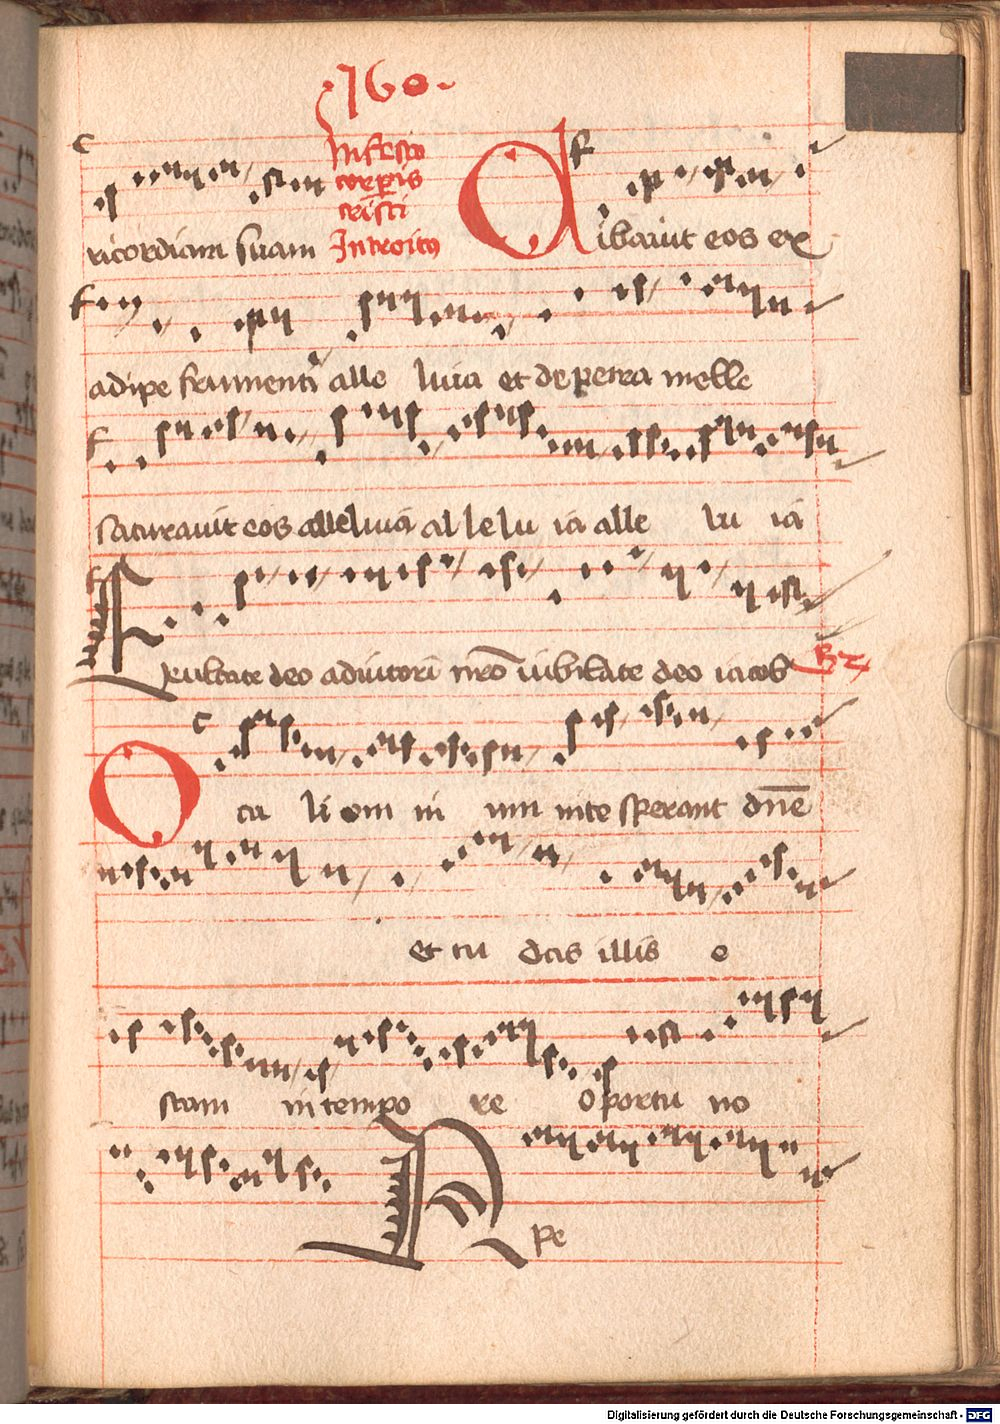 ·160·
In festo
corporis
cristi
Introitus
ricordiam suam Cibavit eos ex
adipe frumenti alle luia et de petra melle
saturavit eos alleluia al le lu ia alle lu ia
Exultate deo adiutori nro iubilate deo iacob
Ocu li om ni um in te sperant dne
et tu das illis e
scam in tempo re oportu no
Ape
Digitalisierung gefördert durch die Deutsche Forschungsgemeinschaft - DFG